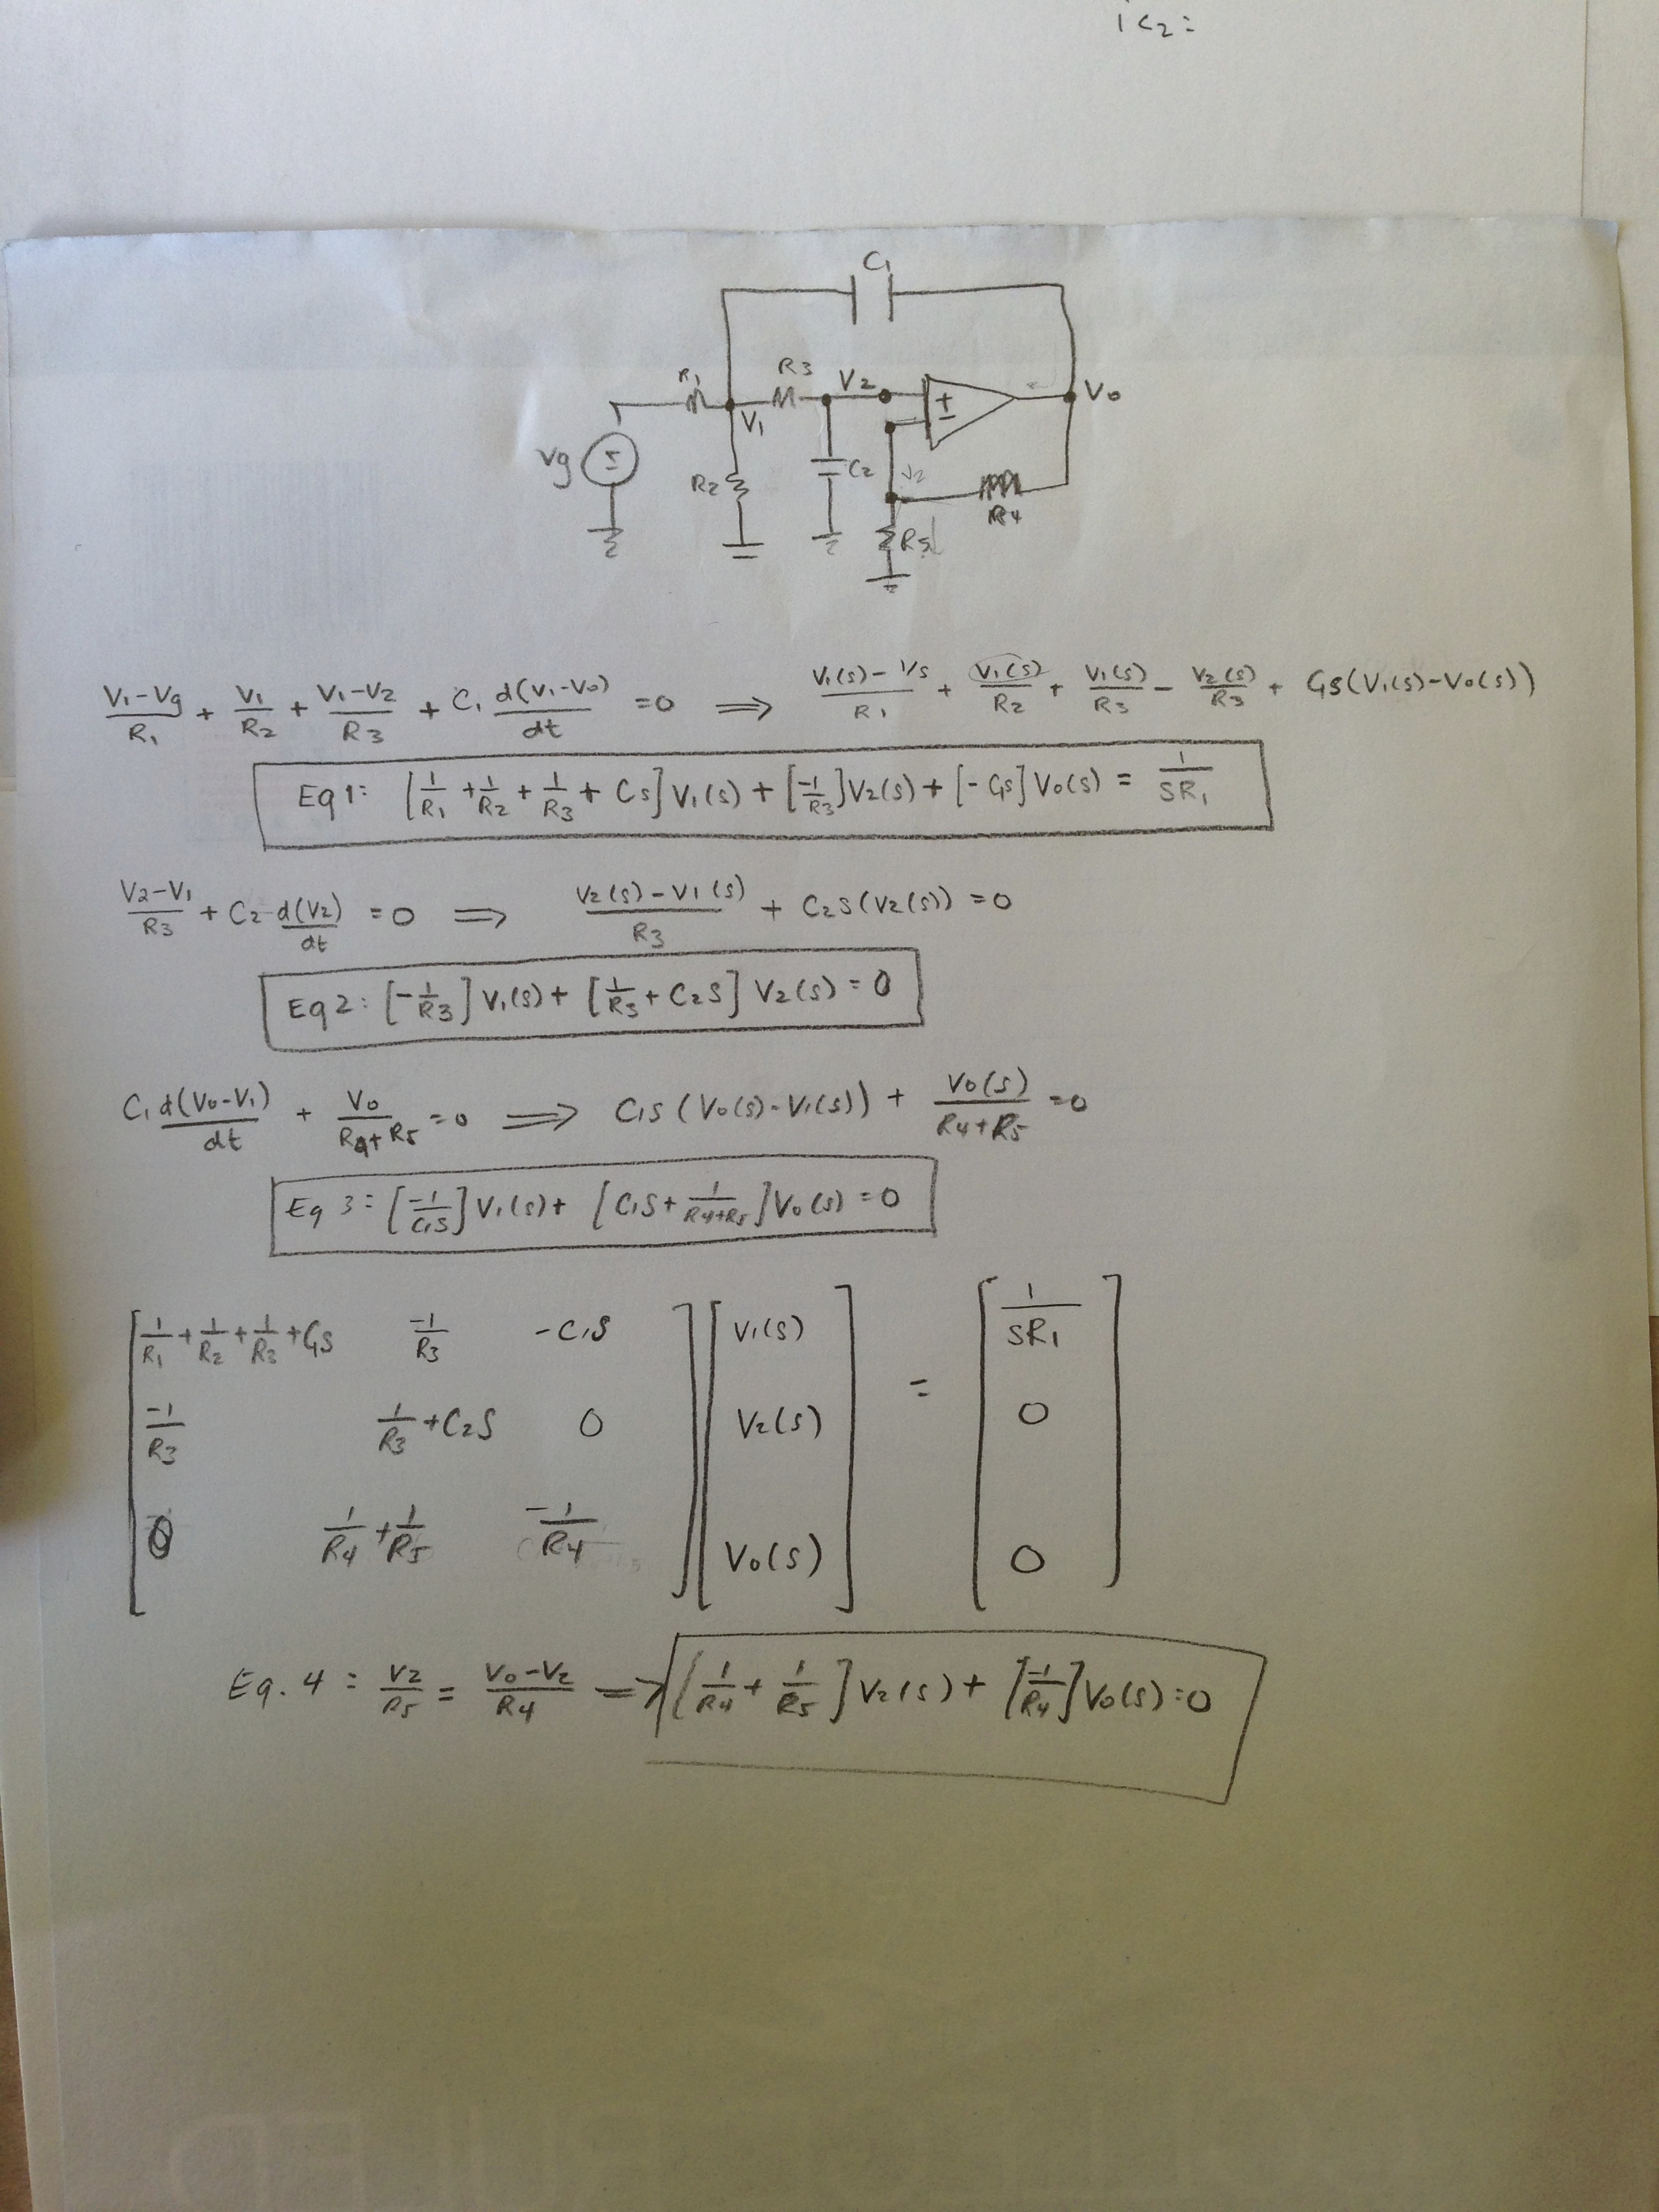 ic2=
C1
R1
R3
V2
+
-
Vo
V1
Vg
R2
C2
V2
R4
R5
(V1-Vg)/R1 + V1/R2 + (V1-V2)/R3 + C1 d(V1-Vo)/dt =0 ⟹ (V1(s)-1/s)/R1 + V1(s)/R2 + V1(s)/R3 - V2(s)/R3 + C1s(V1(s)-Vo(s))
Eq1: [1/R1 + 1/R2 + 1/R3 + Cs]V1(s) + [-1/R3]V2(s) + [-C1s]Vo(s) = 1/SR1
(V2-V1)/R3 + C2 d(V2)/dt =0 ⟹ (V2(s)-V1(s))/R3 + C2S(V2(s)) =0
Eq2: [-1/R3]V1(s) + [1/R3 + C2S]V2(s) = 0
C1 d(Vo-V1)/dt + Vo/(R4+R5) =0 ⟹ C1S(Vo(s)-V1(s)) + Vo(s)/(R4+R5) =0
Eq 3: [-1/C1S]V1(s) + [C1S + 1/(R4+R5)]Vo(s) = 0
[1/R1 + 1/R2 + 1/R3 + C1S  -1/R3  -C1S] [V1(s)] = [1/SR1]
[-1/R3  1/R3 + C2S  0] [V2(s)] [0]
[0  1/R4 + 1/R5  -1/R4] [Vo(s)] [0]
Eq. 4: V2/R5 = (Vo-V2)/R4 ⟹ [1/R4 + 1/R5]V2(s) + [-1/R4]Vo(s)=0